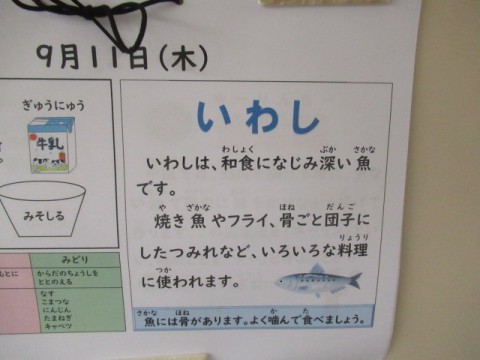 9月11日(木)
ぎゅうにゅう
牛乳
みそしる
みどり
からだのちょうしを
ととのえる
なす
こまつな
にんじん
たまねぎ
キャベツ
いわし
いわしは、和食になじみ深い魚
わしょく ぶか さかな
です。
焼き魚やフライ、骨ごと団子に
や ざかな ほね だんご
したつみれなど、いろいろな料理
りょうり
に使われます。
つか
魚には骨があります。よく噛んで食べましょう。
さかな ほね か た